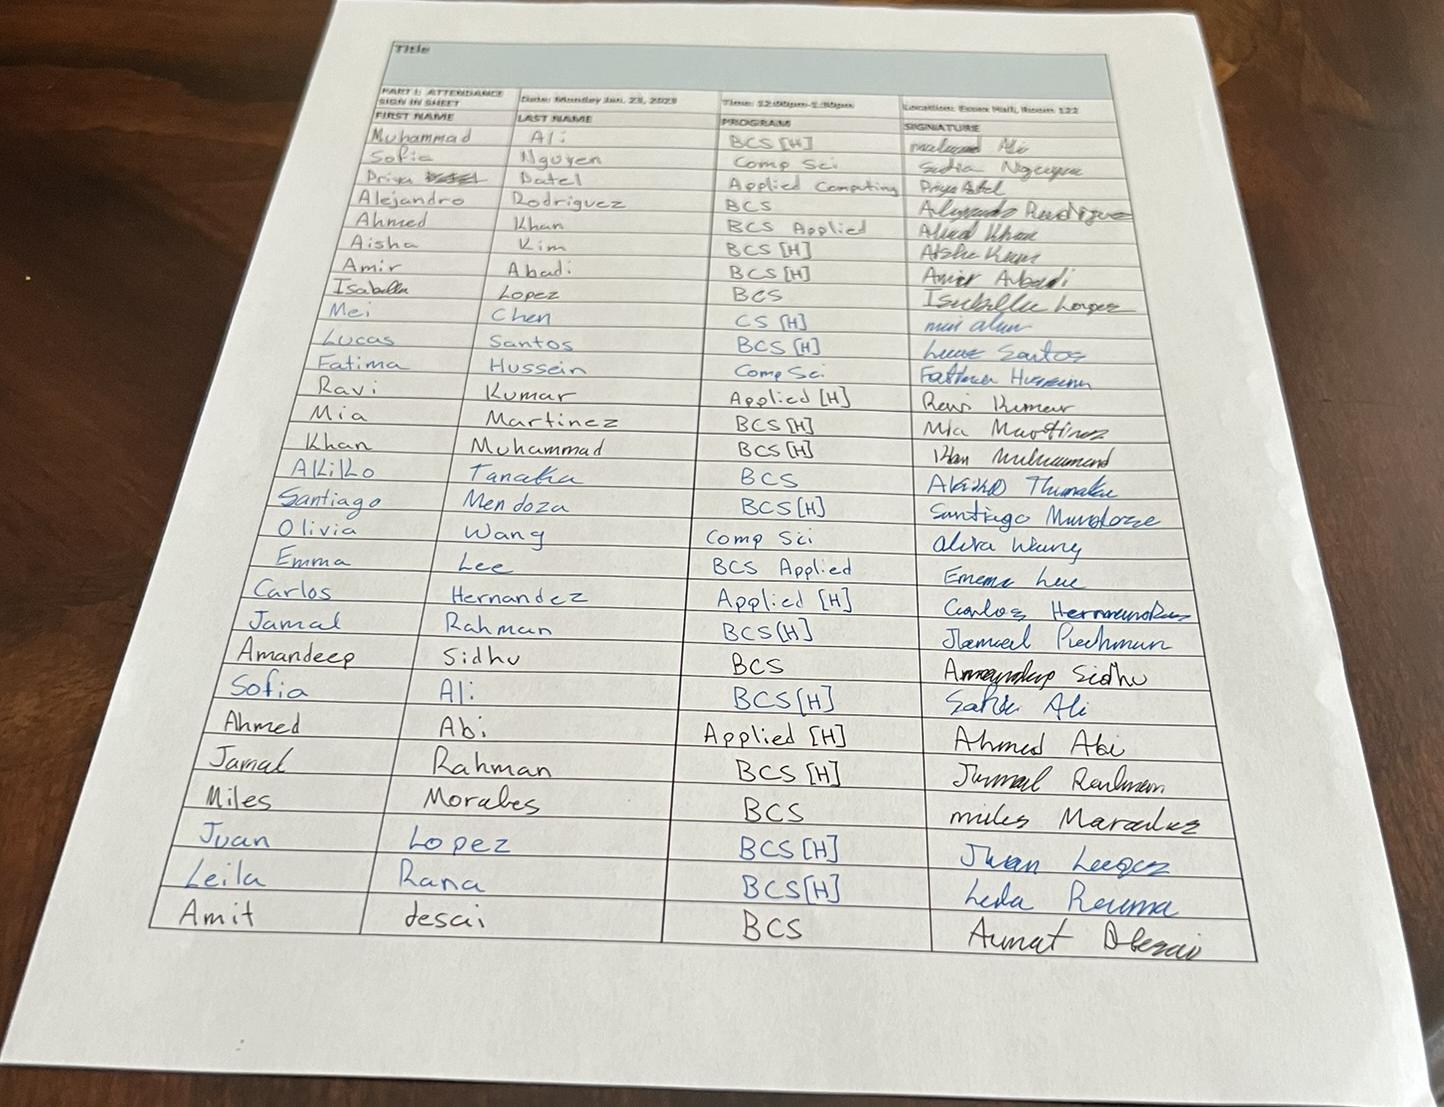 Title
PART I: ATTENDANCE SIGN IN SHEET Date: Monday Jan. 23, 2023 Time: Location: Essex Hall, Room 122
FIRST NAME LAST NAME PROGRAM SIGNATURE
Muhammad Ali BCS [H] Ali
Sofia Nguyen Comp Sci Sofia Nguyen
Priya Patel Applied Computing Priya Patel
Alejandro Rodriguez BCS Alejandro Rodriguez
Ahmed Khan BCS Applied Ahmed Khan
Aisha Kim BCS [H] Aisha Kim
Amir Abadi BCS [H] Amir Abadi
Isabella Lopez BCS Isabella Lopez
Mei Chen CS [H]
Lucas Santos BCS [H] Lucas Santos
Fatima Hussein Comp Sci Fatima Hussein
Ravi Kumar Applied [H] Ravi Kumar
Mia Martinez BCS [H] Mia Martinez
Khan Muhammad BCS [H] Khan Muhammad
Akiko Tanaka BCS Akiko
Santiago Mendoza BCS [H] Santiago Mendoza
Olivia Wang Comp Sci Wang
Emma Lee BCS Applied Emma Lee
Carlos Hernandez Applied [H] Carlos Hernandez
Jamal Rahman BCS [H] Jamal Rahman
Amandeep Sidhu BCS Amandeep Sidhu
Sofia Ali BCS [H] Sofia Ali
Ahmed Abi Applied [H] Ahmed Abi
Jamal Rahman BCS [H] Jamal Rahman
Miles Morales BCS miles Morales
Juan Lopez BCS [H] Juan Lopez
Leila Rana BCS [H] Leila
Amit desai BCS